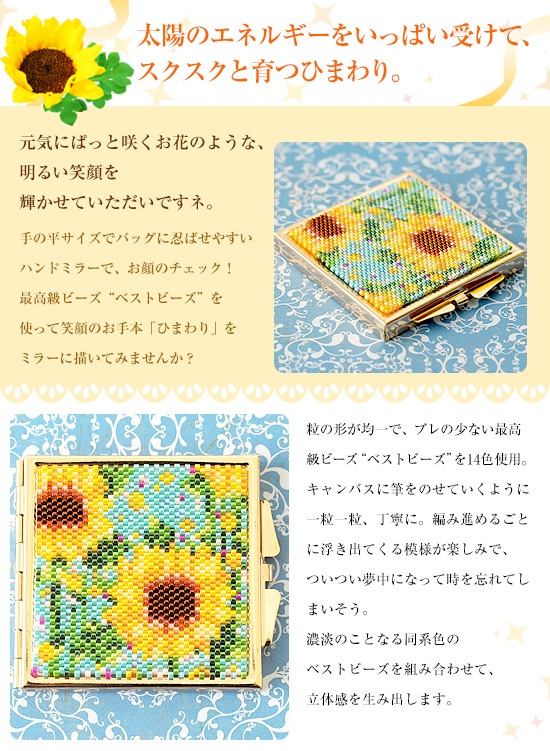 太陽のエネルギーをいっぱい受けて、
スクスクと育つひまわり。
元気にぱっと咲くお花のような、
明るい笑顔を
輝かせていただいですネ。
手の平サイズでバッグに忍ばせやすい
ハンドミラーで、お顔のチェック！
最高級ビーズ“ベストビーズ”を
使って笑顔のお手本「ひまわり」を
ミラーに描いてみませんか？
粒の形が均一で、ブレの少ない最高
級ビーズ“ベストビーズ”を14色使用。
キャンバスに筆をのせていくように
一粒一粒、丁寧に。編み進めるごと
に浮き出てくる模様が楽しみで、
ついつい夢中になって時を忘れてし
まいそう。
濃淡のことなる同系色の
ベストビーズを組み合わせて、
立体感を生み出します。